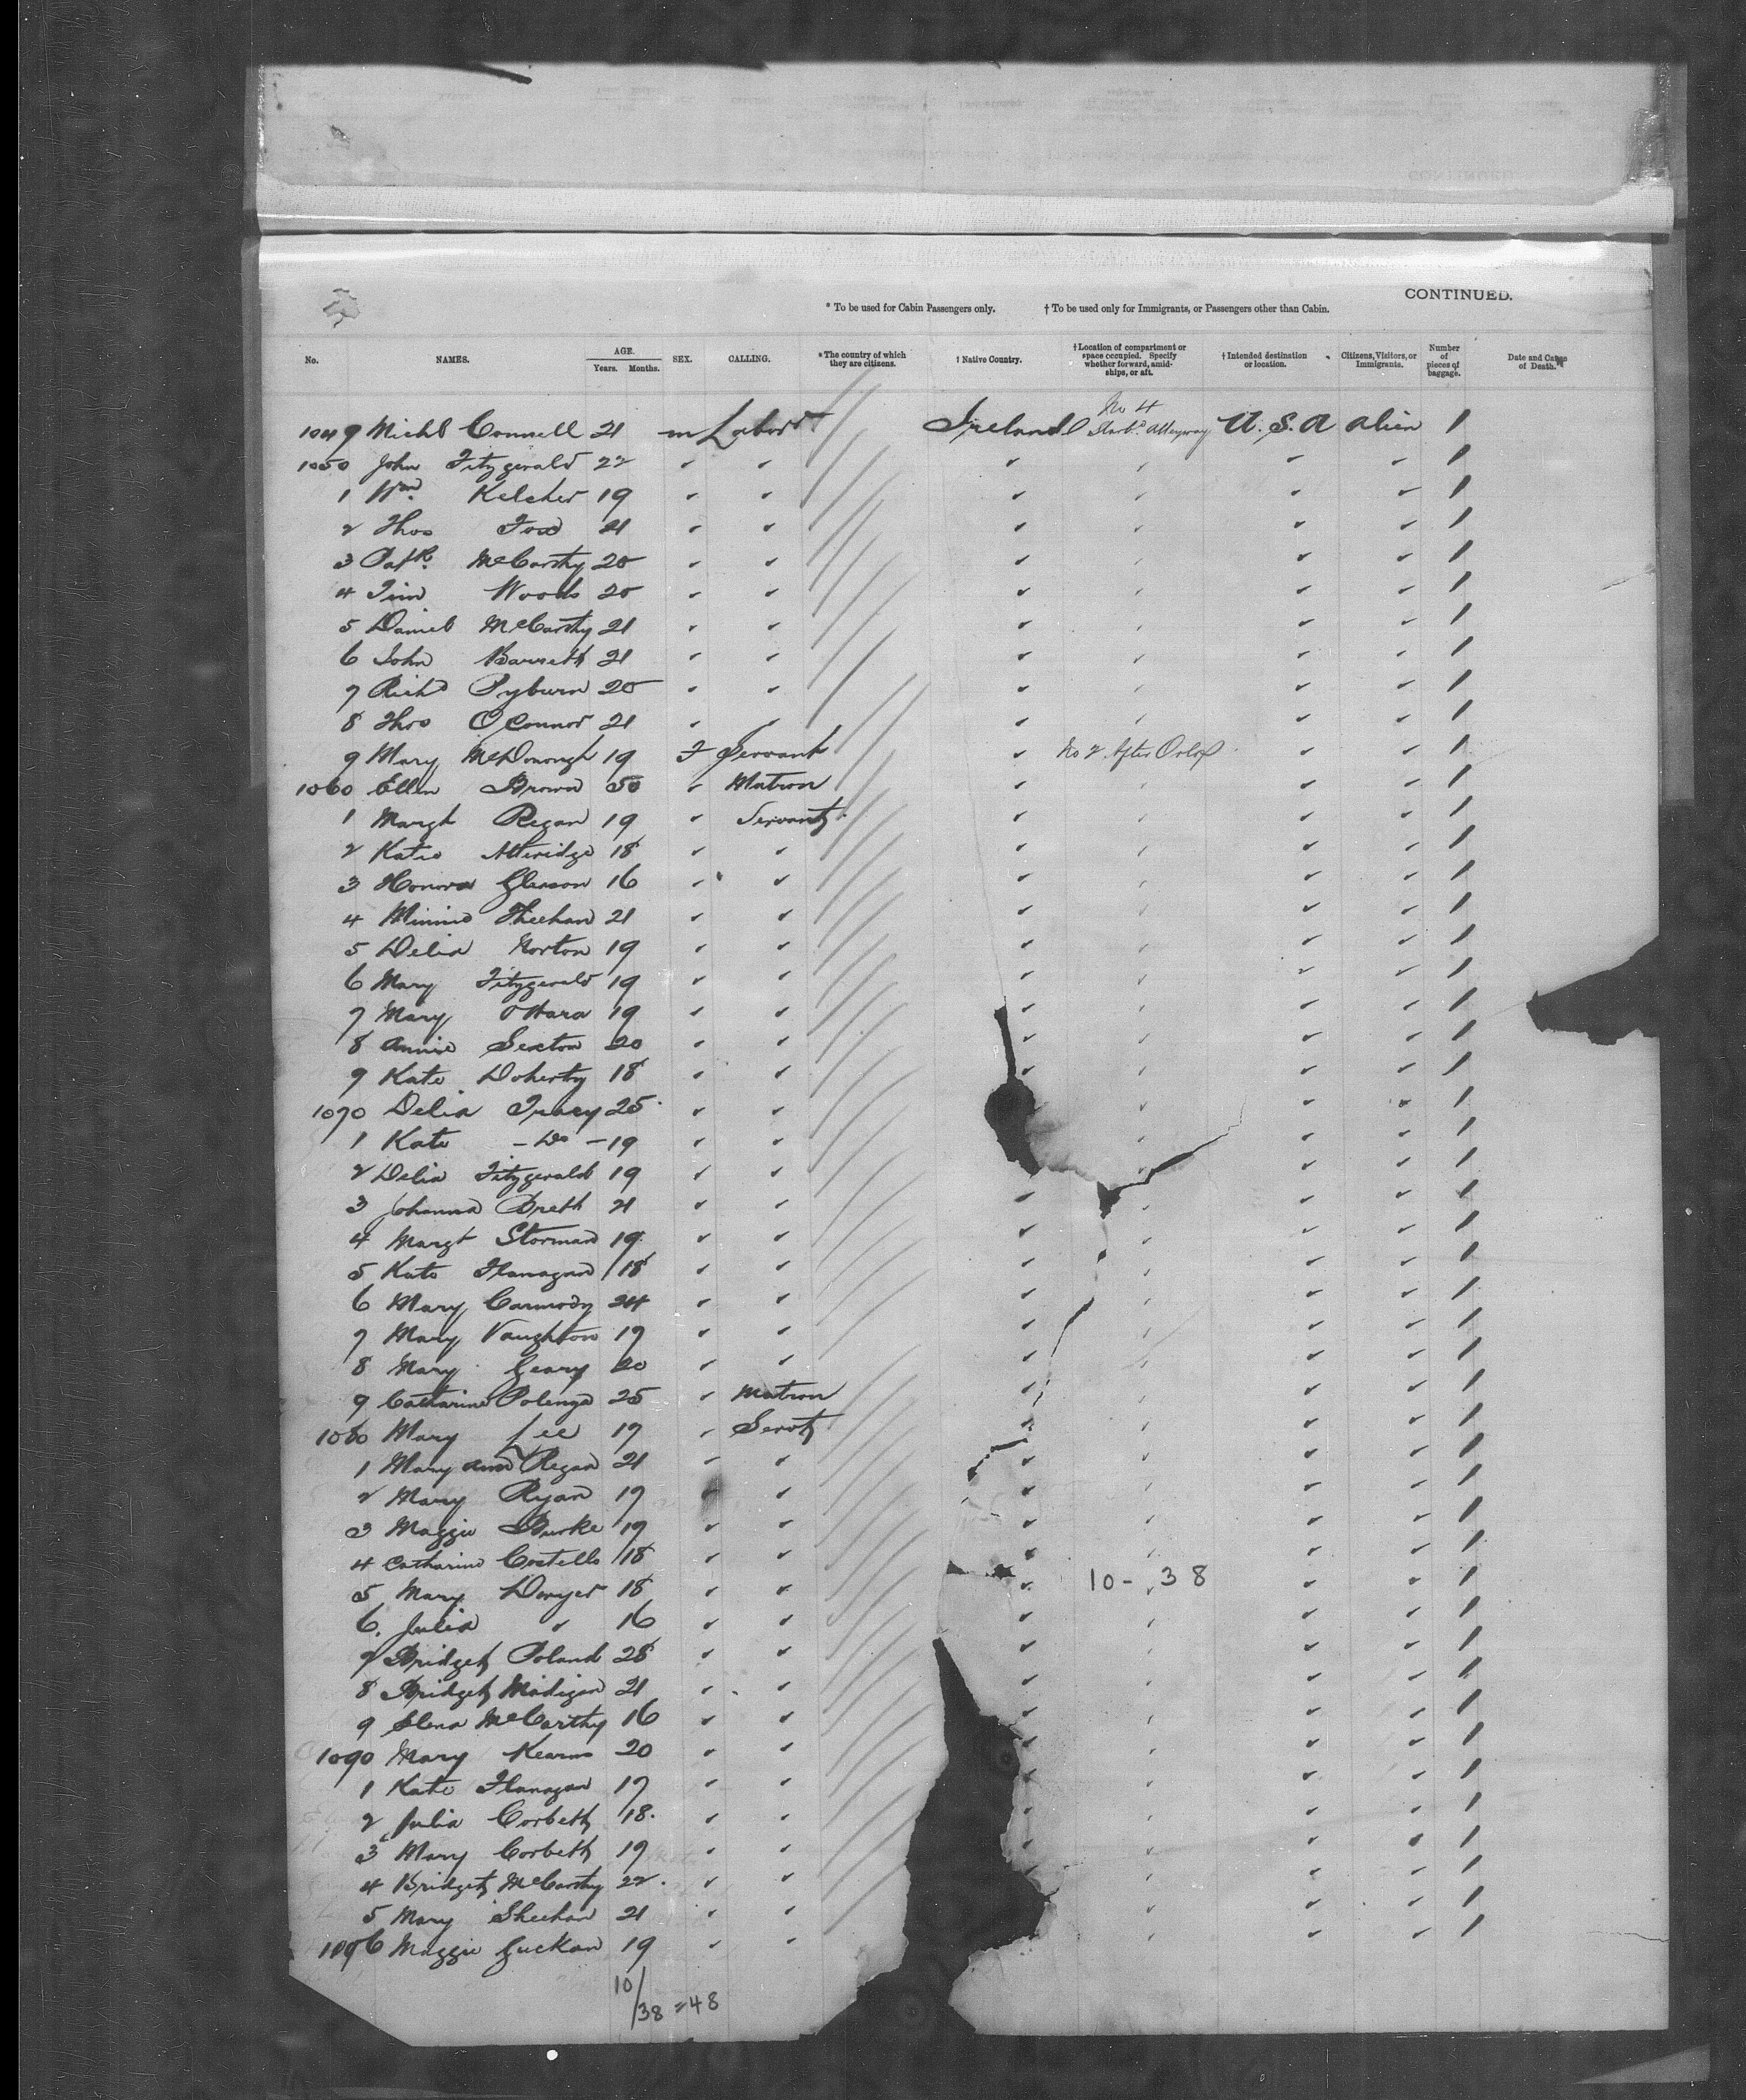 CONTINUED.
* To be used for Cabin Passengers only. † To be used only for Immigrants, or Passengers other than Cabin.
No. NAMES. AGE. Years. Months. SEX. CALLING. * The country of which they are citizens. † Native Country. † Location of compartment or space occupied. Specify whether forward, amidships, or aft. † Intended destination or location. Citizens, Visitors, or Immigrants. Number of pieces of baggage. Date and Cause of Death.
1049 Michl Connell 21 m Labor Ireland No 4 Starbd Alleyway U.S.A alien 1
1050 John Fitzgerald 22 " " " " " " 1
1 Wm Kelcher 19 " " " " " " 1
2 Thos Ford 21 " " " " " " 1
3 Patk. McCarthy 20 " " " " " " 1
4 Tim Woods 20 " " " " " " 1
5 Daniel McCarthy 21 " " " " " " 1
6 John Barrett 21 " " " " " " 1
7 Richd Pyburn 20 " " " " " " 1
8 Thos O'Connor 21 " " " " " " 1
9 Mary McDonough 19 F Servant " No 2 After Orlop " " 1
1060 Ellen Brown 50 " Matron " " " " 1
1 Margt Regan 19 " Servant " " " " 1
2 Katie Atteridge 18 " " " " " " 1
3 Honora Gleason 16 " " " " " " 1
4 Minnie Sheehan 21 " " " " " " 1
5 Delia Norton 19 " " " " " " 1
6 Mary Fitzgerald 19 " " " " " " 1
7 Mary O'Hara 19 " " " " " " 1
8 Annie Sexton 20 " " " " " " 1
9 Kate Doherty 18 " " " " " " 1
1070 Delia Tracy 25 " " " " " 1
1 Kate - Do - 19 " " " " " 1
2 Delia Fitzgerald 19 " " " " 1
3 Johanna Brett 21 " " " " " 1
4 Margt Storman 19 " " " " " " 1
5 Kate Flanagan 18 " " " " " " 1
6 Mary Carmody 24 " " " " " " 1
7 Mary Vaughton 19 " " " " " " 1
8 Mary Geary 20 " " " " " " 1
9 Catharine Polenga 25 " Matron " " " " 1
1080 Mary Lee 19 " Servt " " " " 1
1 Mary Ann Regan 21 " " " " " " 1
2 Mary Ryan 19 " " " " " " 1
3 Maggie Burke 19 " " " " " " 1
4 Catharine Costello 18 " " " " " " 1
5 Mary Dwyer 18 " " " 10 - 38 " " 1
6. Julia " 16 " " " " " " 1
7 Bridget Poland 28 " " " " " " 1
8 Bridget Madigan 21 " " " " " " 1
9 Lena McCarthy 16 " " " " " " 1
1090 Mary Kearns 20 " " " " " " 1
1 Kate Flanagan 19 " " " " " " 1
2 Julia Corbett 18 " " " " " " 1
3 Mary Corbett 19 " " " " " " 1
4 Bridget McCarthy 22 " " " " " 1
5 Mary Sheehan 21 " " " " " 1
1096 Maggie Guckan 19 " " " " 1
10/38 = 48